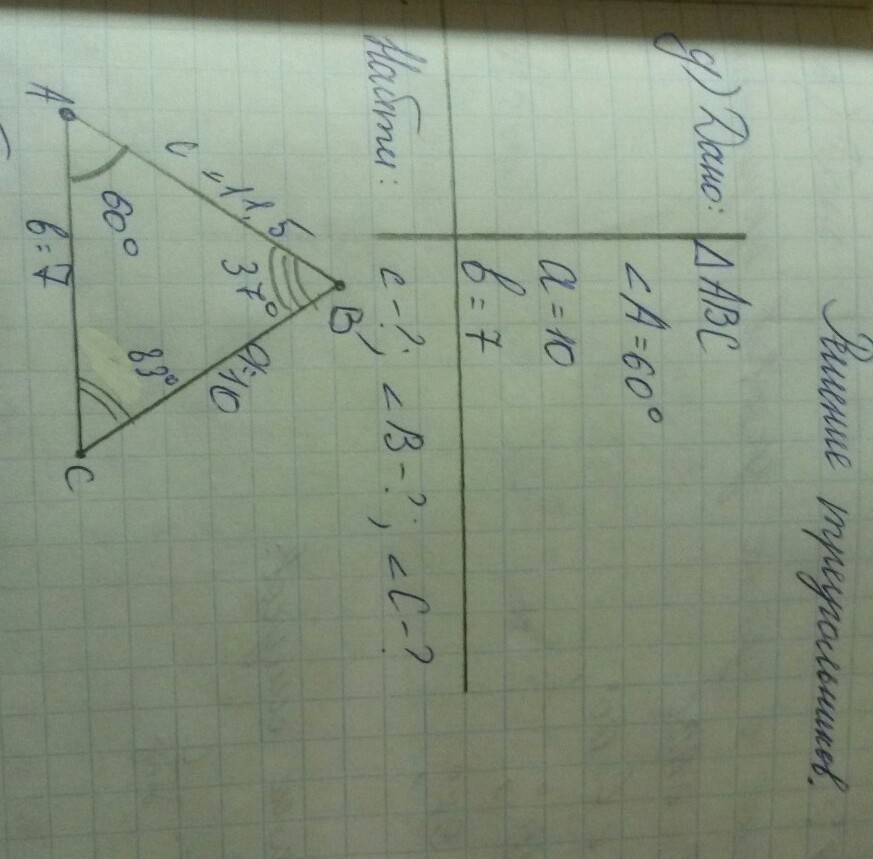 Решение треугольников.
д) Дано: Δ ABC
<A = 60°
a = 10
b = 7
Найти: c - ?; <B - ?; <C - ?
B
37°
a=10
60°
83°
A
b = 7
C